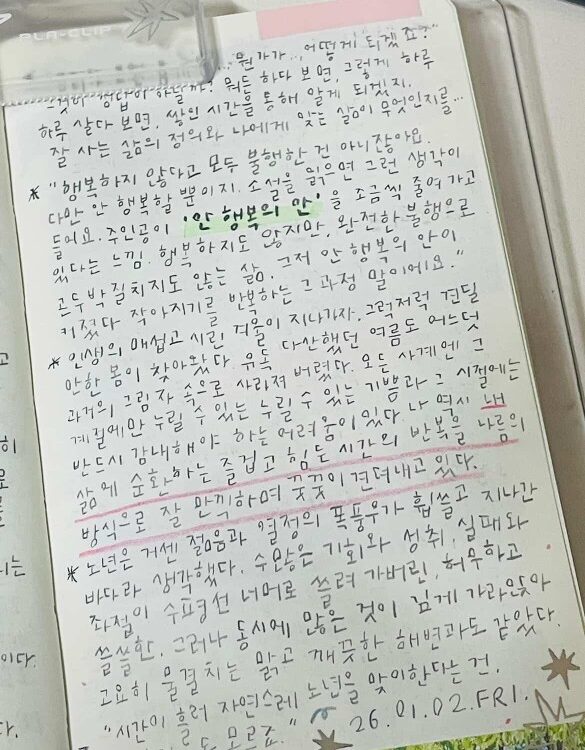 PLA-CLIP
뭔가가... 어떻게 되겠죠?"
정답이 아닐까? 뭐든 하다 보면, 그렇게 하루
하루 살다 보면, 쌓인 시간을 통해 알게 되겠지.
잘 사는 삶의 정의와 나에게 맞는 삶이 무엇인지를...
* "행복하지 않다고 모두 불행한 건 아니잖아요.
다만 안 행복할 뿐이지. 소설을 읽으면 그런 생각이
들어요. 주인공이 '안 행복의 안'을 조금씩 줄여 가고
있다는 느낌. 행복하지도 않지만, 완전한 불행으로
곤두박질치지도 않는 삶. 그저 안 행복의 안이
커졌다 작아지기를 반복하는 그 과정 말이에요."
* 인생의 매섭고 시린 겨울이 지나가자, 그럭저럭 견딜
만한 봄이 찾아왔다. 유독 다산했던 여름도 어느덧
과거의 그림자 속으로 사라져 버렸다. 모든 사계엔 그
계절에만 누릴 수 있는 누릴 수 있는 기쁨과 그 시절에는
반드시 감내해야 하는 어려움이 있다. 나 역시 내
삶에 순환하는 즐겁고 힘든 시간의 반복을 나름의
방식으로 잘 만끽하며 꿋꿋이 견뎌내고 있다.
* 노년은 거센 젊음과 열정의 폭풍우가 휩쓸고 지나간
바다라 생각했다. 수많은 기회와 성취, 실패와
좌절이 수평선 너머로 쓸려 가버린, 허무하고
쓸쓸한. 그러나 동시에 많은 것이 깊게 가라앉아
고요히 물결치는 맑고 깨끗한 해변과도 같았다.
"시간이 흘러 자연스레 노년을 맞이한다는 건.
도 모르죠."
26.01.02.FRI.
이다.